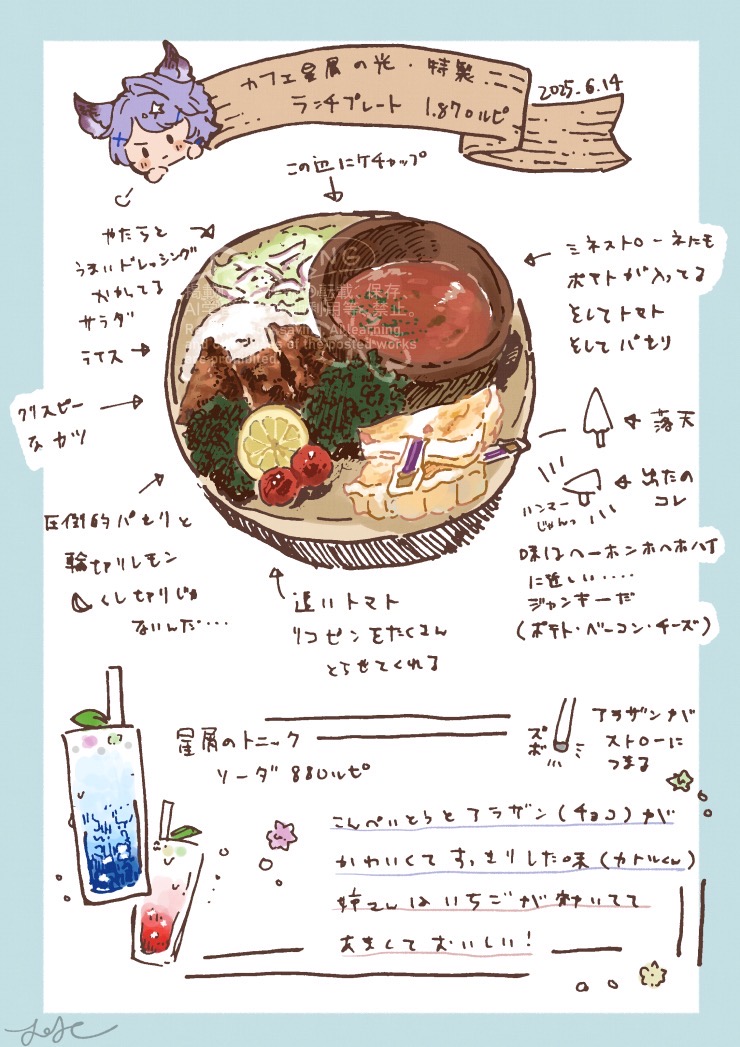 カフェ星屑の光・特製
ランチプレート 1.870ルピ
2025.6.14
この辺にケチャップ
やたらと
うまいドレッシング
かかってる
サラダ
ライス
クリスピー
なカツ
圧倒的パセリと
輪切りレモン
くし切りじゃ
ないんだ…
追いトマト
リコピンをたくさん
とらせてくれる
ミネストローネにも
ポテトが入ってる
そしてトマト
そしてパセリ
落天
出たの
コレ
ハンマー
じゃんっ
味はヘーホンホヘホハイ
に近しい....
ジャンキーだ
(ポテト・ベーコン・チーズ)
星屑のトニック
ソーダ 880ルピ
ズボ
アラザンが
ストローに
つまる
こんぺいとうとアラザン(チョコ)が
かわいくてすっきりした味(カトルくん)
姉さんはいちごが効いてて
あまくておいしい!